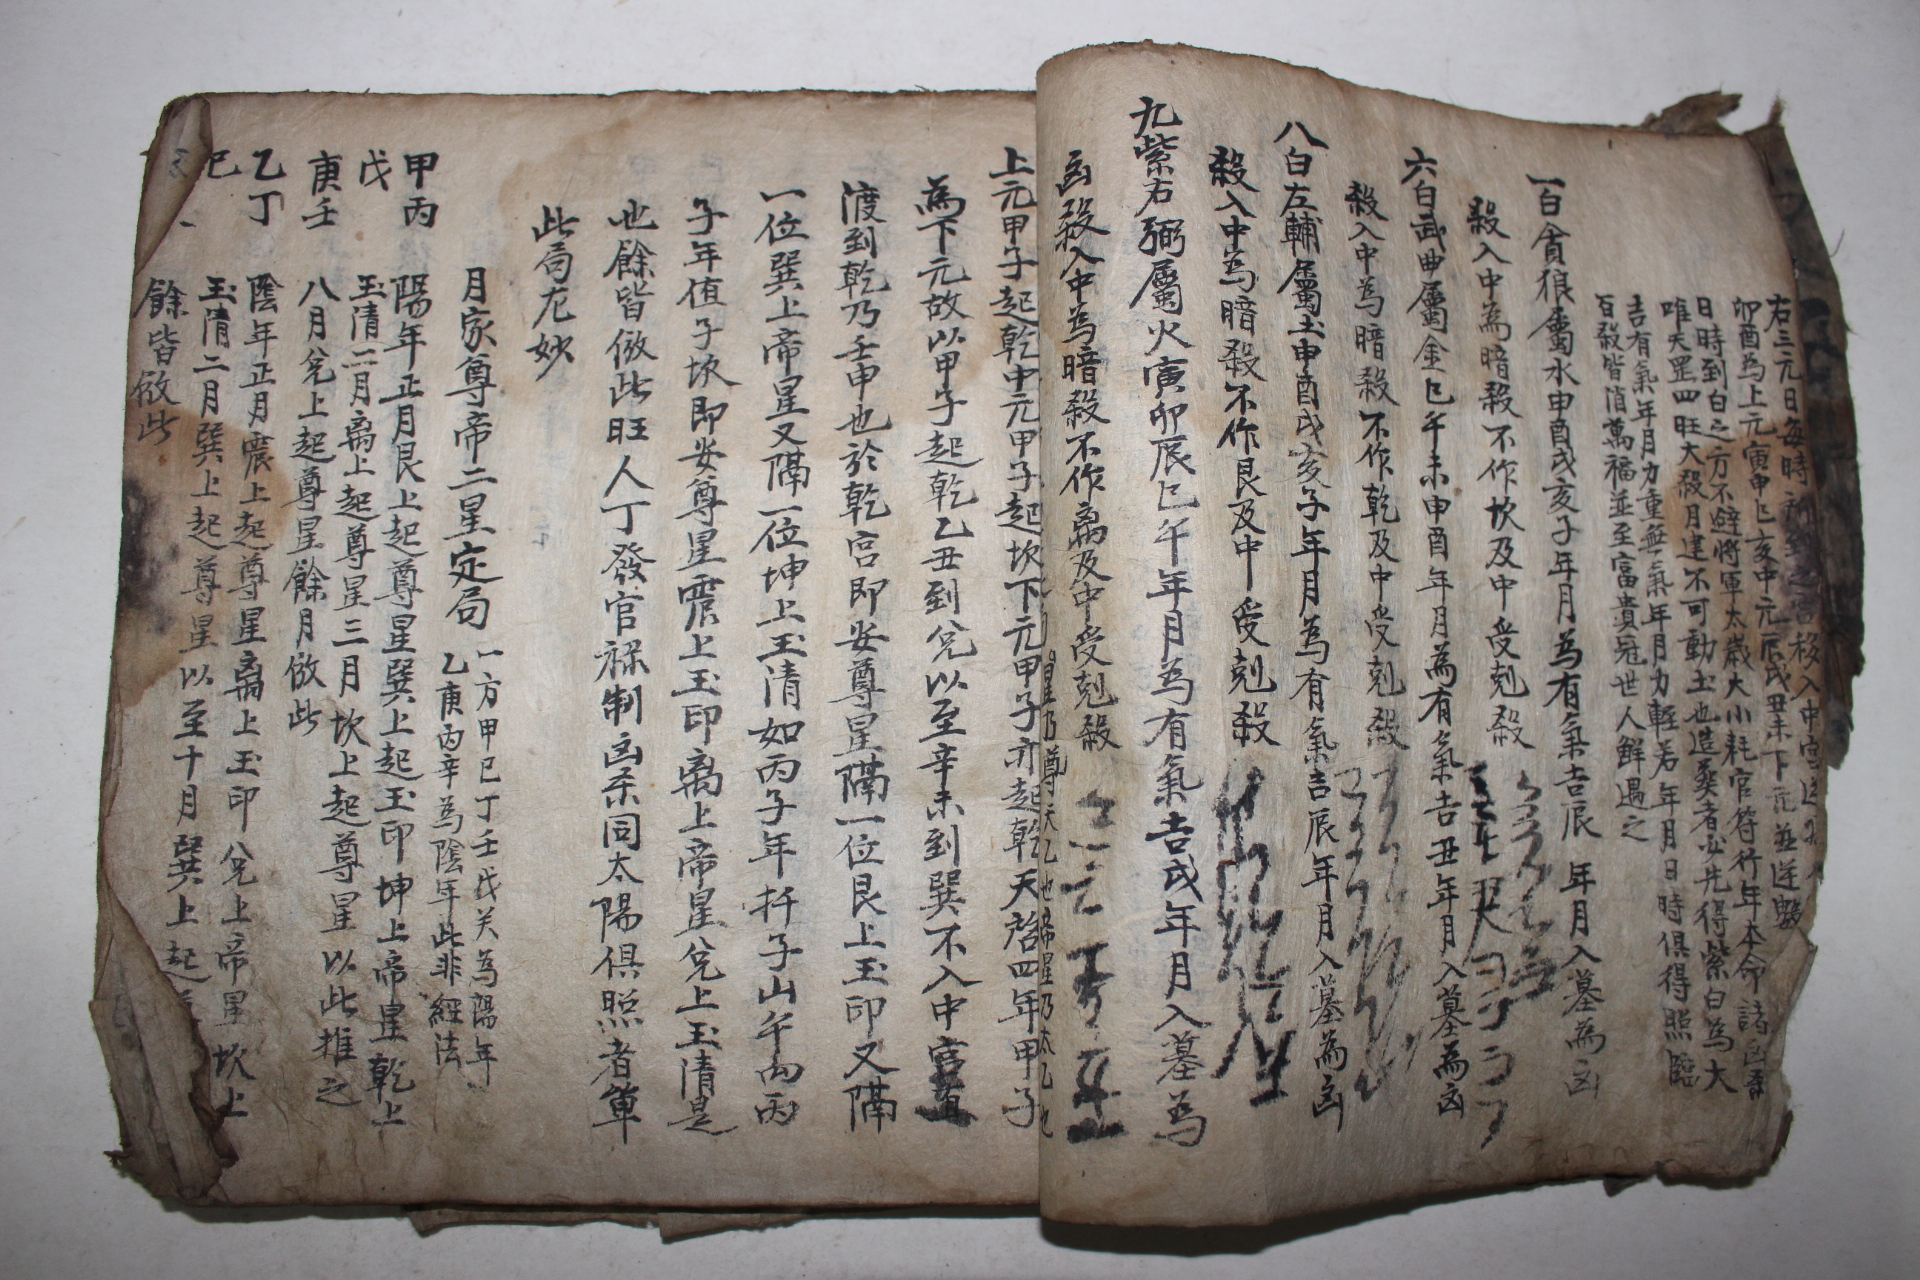 右三元日每時所到之宮移入中宮逆
卯酉為上元寅申巳亥中元辰戌丑未下元並逆盤
日時到白之方不避將軍太歲大小耗官符行年本命諸凶
唯天罡四旺大殺月建不可動土也造葬者必先得紫白為大
吉有氣年月力重無氣年月力輕若年月日時俱得照臨
百殺皆消萬福並至富貴冠世人鮮遇之
一白貪狼屬水申酉戌亥子年月為有氣吉辰年月入墓為凶
殺入中為暗殺不作坎及中受剋殺
六白武曲屬金巳午未申酉年月為有氣吉丑年月入墓為凶
殺入中為暗殺不作乾及中受剋殺
八白左輔屬土申酉戌亥子年月為有氣吉辰年月入墓為凶
殺入中為暗殺不作艮及中受剋殺
九紫右弼屬火寅卯辰巳午年月為有氣吉戌年月入墓為
凶殺入中為暗殺不作離及中受剋殺
上元甲子起乾中元甲子起坎下元甲子亦起乾天啓四年甲子
為下元故以甲子起乾乙丑到兌以至辛未到巽不入中宮直
渡到乾乃壬申也於乾宮即安尊星隔一位艮上玉印又隔
一位巽上帝星又隔一位坤上玉清如丙子年扦子山午向丙
子年值子坎即安尊星震上玉印离上帝星兌上玉清是
也餘皆倣此旺人丁發官祿制凶殺同太陽俱照者第
此局尤妙
月家尊帝二星定局 一方甲己丁壬戊癸為陽年
乙庚丙辛為陰年此非經法
甲丙 陽年正月艮上起尊星巽上起玉印坤上帝星乾上
戊 玉清二月离上起尊星三月坎上起尊星以此推之
庚壬 八月兌上起尊星餘月倣此
乙丁 陰年正月震上起尊星离上玉印兌上帝星坎上
己 玉清二月巽上起尊星以至十月巽上起
餘皆倣此